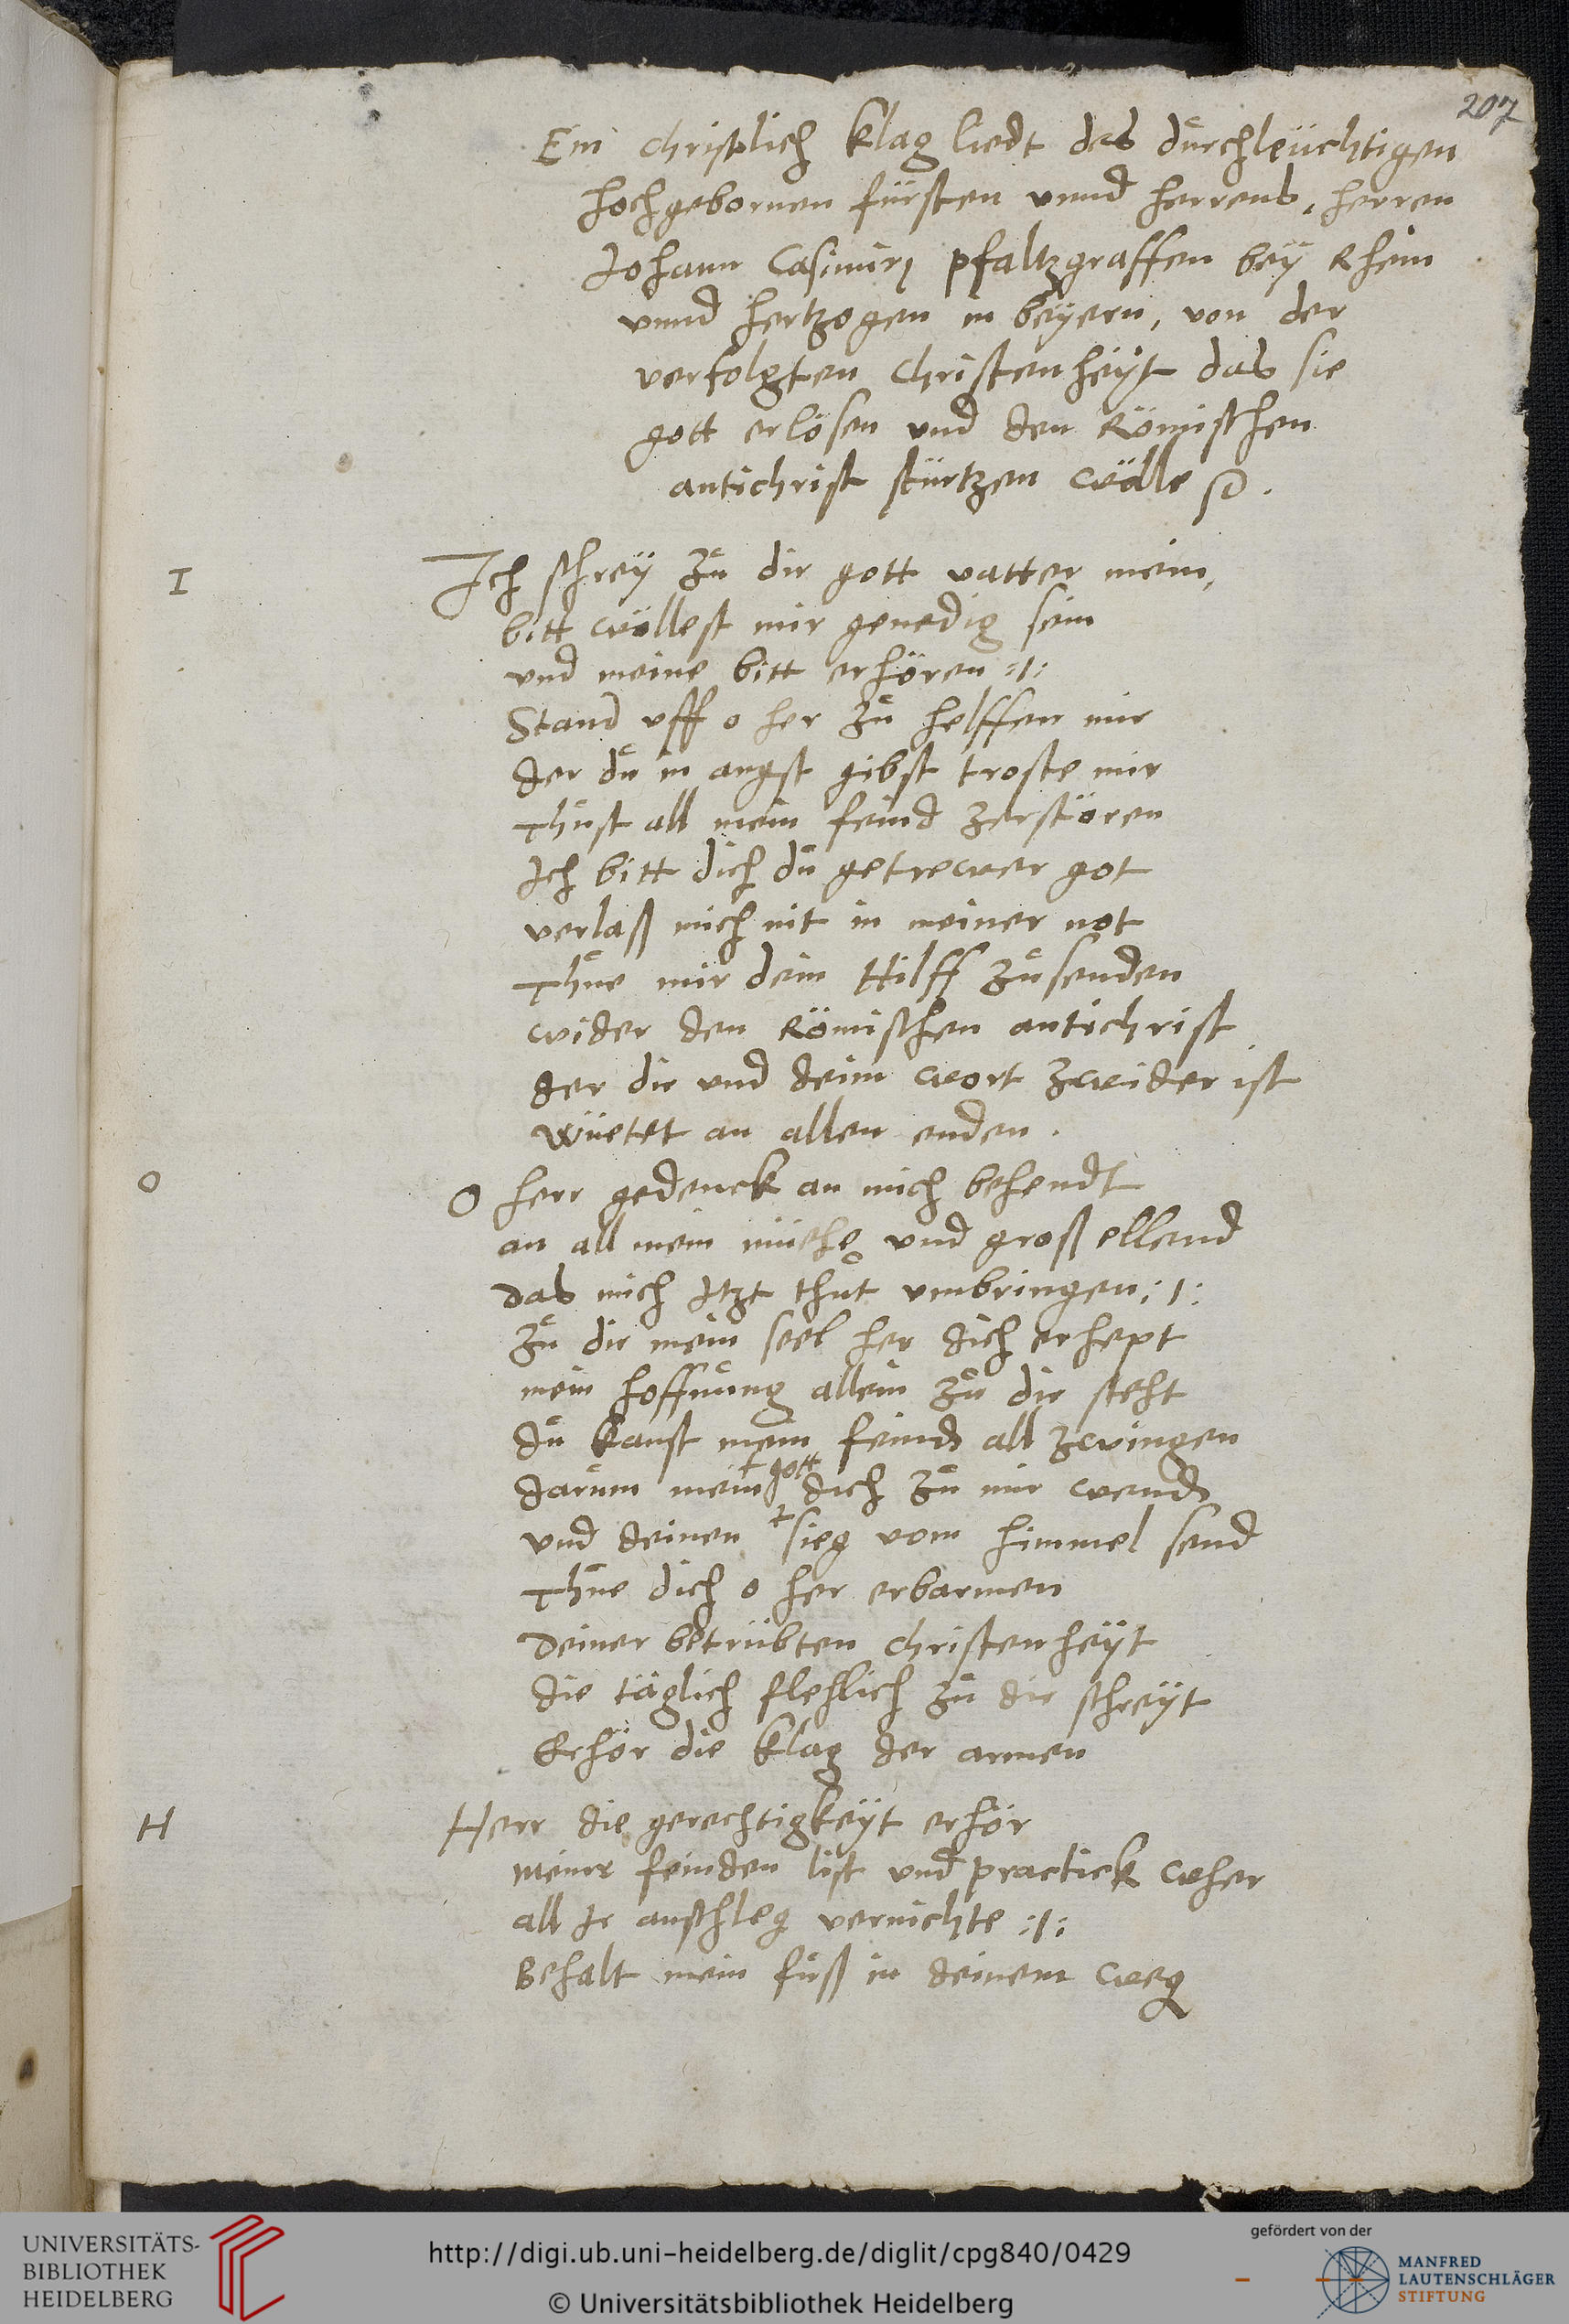 207
Ein christlich klag liedt des durchleüchtigen
hochgebornen fürsten vnnd herrens, herren
Johann Casimiri pfaltzgraffen beÿ Rhein
vnnd hertzogen in beÿern, von der
verfolgten Christenheÿt das sie
gott erlösen vnd den Römischen
antichrist stürtzen wölle
I
Ich schreÿ zů dir gott vatter mein,
bitt wöllest mir genedig sein
vnd meine bitt erhören :/:
Stand vff o her zů helffen mir
der dů in angst gibst troste mir
Thůst all mein feind zerstören
Ich bitt dich dů getrewer got
verlaß mich nit in meiner not
Thůe mir dein Hilff zůsenden
wider den Römischen antichrist
der dir vnd deim wort zwider ist
wüetet an allen enden.
O
O herr gedenck an mich behendt
an all mein müehe vnd groß ellend
das mich itzt thůt vmbringen :/:
Zů dir mein seel her dich erhept
mein hoffnůng allein zů dir steht
dů kanst mein feind all zwingen
darům mein gott dich zů mir wend
vnd deinen sieg vom himmel send
Thůe dich o her erbarmen
Deiner betrübten christenheÿt
die täglich flehlich zů dir schreÿt
Erhör die klag der armen
H
Herr die gerechtigkeÿt erhör
meinr feinden list vnd practick wher
all Ir anschleg vernichte :/:
Behalt mein fůß in deinem weg
UNIVERSITÄTS-
BIBLIOTHEK
HEIDELBERG
http://digi.ub.uni-heidelberg.de/diglit/cpg840/0429
© Universitätsbibliothek Heidelberg
gefördert von der
MANFRED
LAUTENSCHLÄGER
STIFTUNG